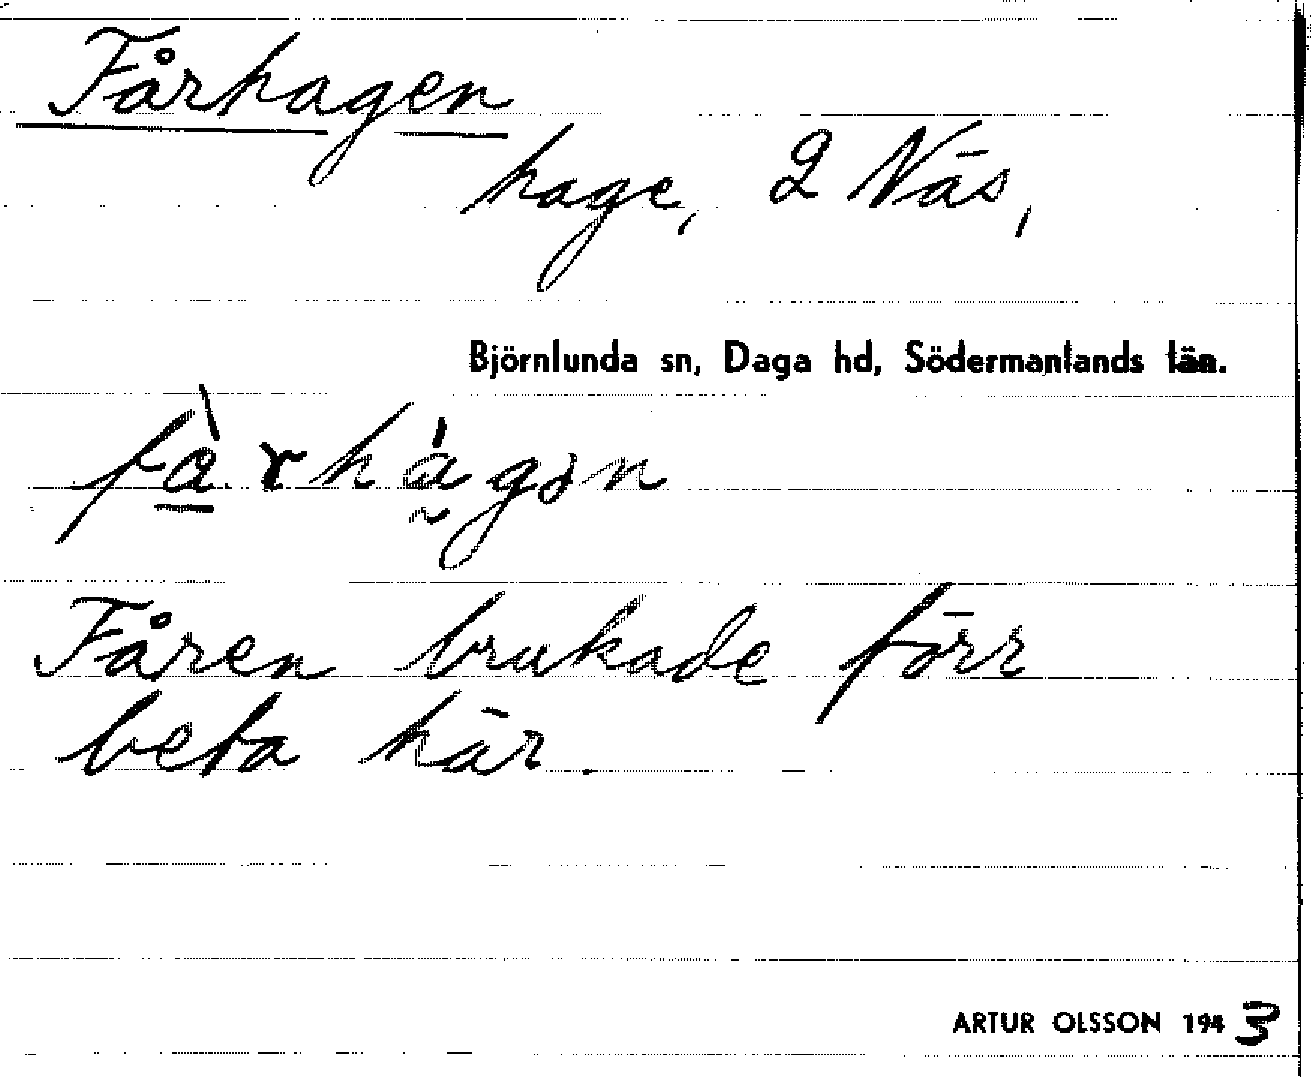 Fårhagen
hage, 2 Näs,
Björnlunda sn, Daga hd, Södermanlands län.
fà̲rhá̰gən
Fåren brukade förr
beta här.
ARTUR OLSSON 1943